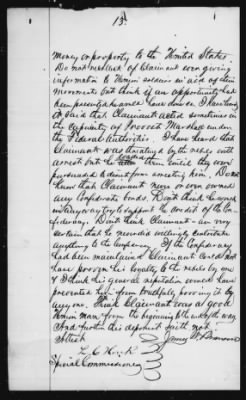 13
money or property to the United States
Do not recollect of Claimant ever giving
information to Union soldiers in aid of their
movements but think if an opportunity had
been presented he would have done so. I have heard
it said that Claimant acted sometimes in
the capacity of Provost Marshal under
the Federal Authorities. I have heard that
Claimant was threatened by the rebels with
arrest but he them until they were
persuaded to desist from arresting him. Do not
know that Claimant never or ever owned
any Confederate bonds. Don't think he
in any way to support the credit of the Con-
federates. Don't think Claimant - am very
certain that he never did willingly contribute
anything to the Confederacy. If the Confederacy
had been maintained Claimant could not
have proven his loyalty to the rebels by me
& I think his general reputation would have
prevented him from proving it by
any one. Think Claimant was a good
Union man from the beginning to the end of the war
And further this deponent saith not.
Attest James W.
L. C. Houk
Special Commissioner